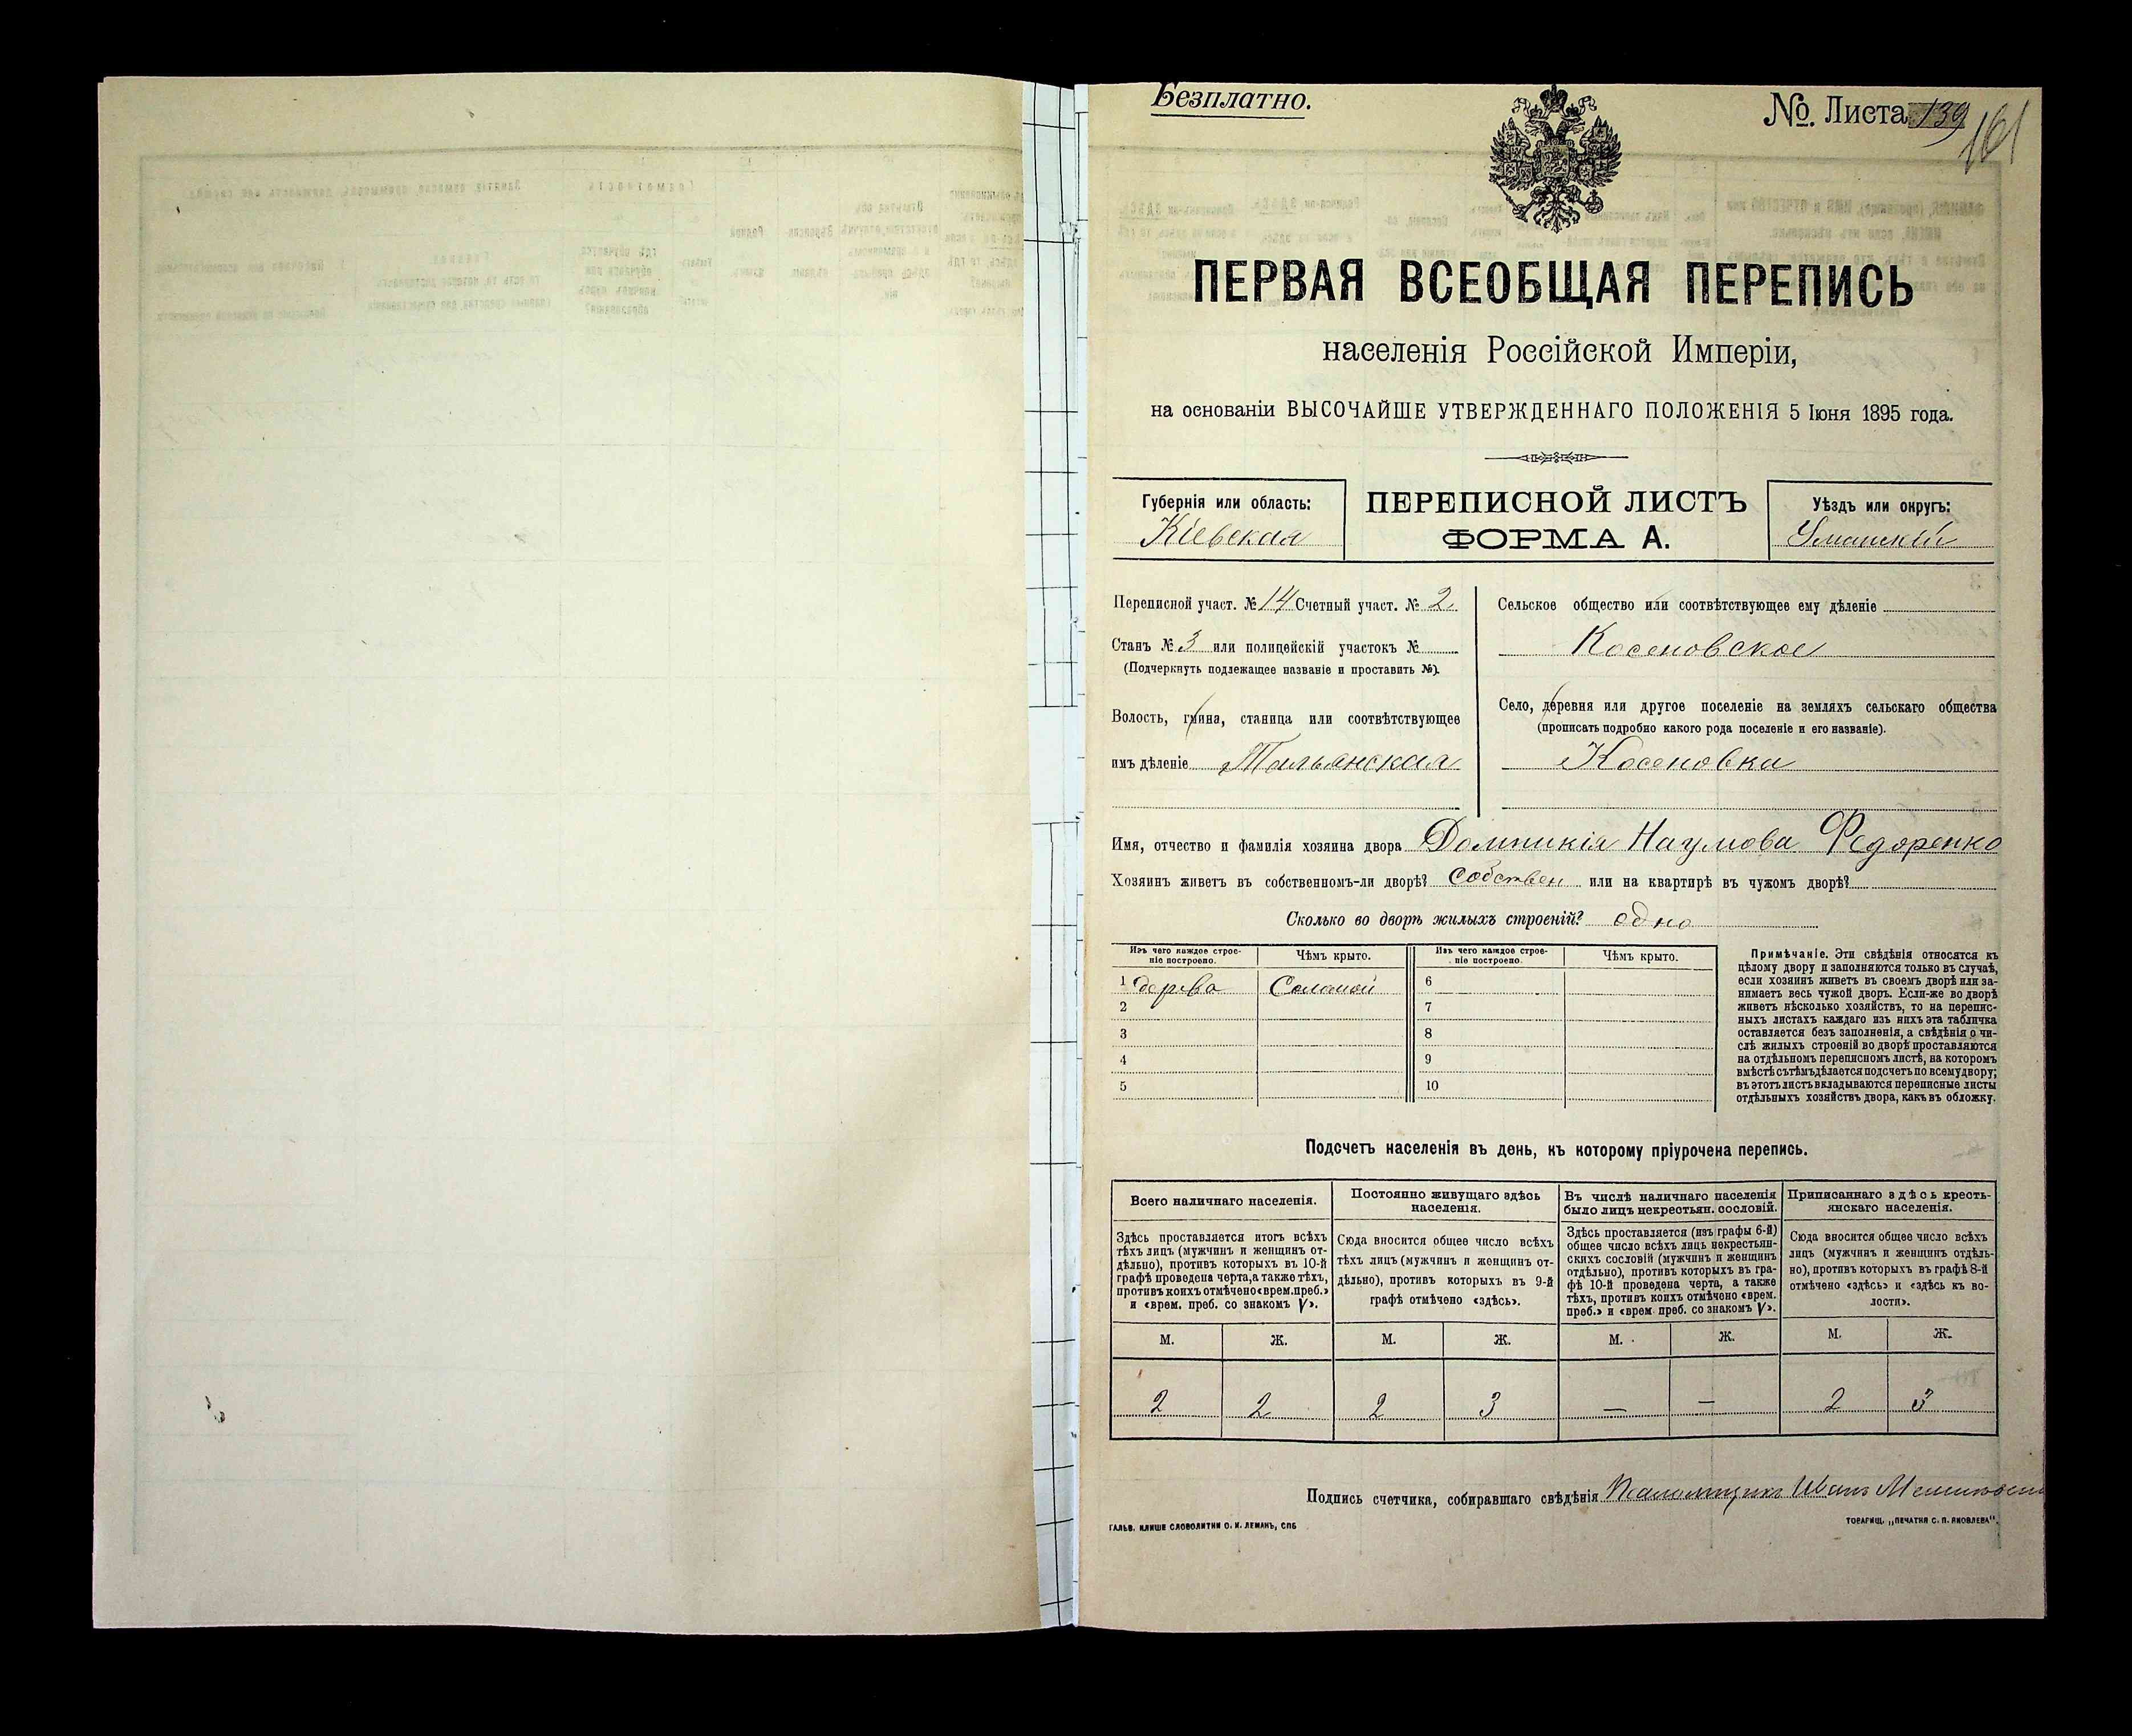 Безплатно.
№. Листа 139
161
ПЕРВАЯ ВСЕОБЩАЯ ПЕРЕПИСЬ
населенія Россійской Имперіи,
на основаніи ВЫСОЧАЙШЕ УТВЕРЖДЕННАГО ПОЛОЖЕНІЯ 5 Іюня 1895 года.
Губернія или область:
Кіевская
ПЕРЕПИСНОЙ ЛИСТЪ
ФОРМА А.
Уѣздъ или округъ:
Уманскій
Переписной участ. № 14 Счетный участ. № 2.
Станъ № 3 или полицейскій участокъ №
(Подчеркнуть подлежащее названіе и проставить №).
Волость, гмина, станица или соотвѣтствующее
имъ дѣленіе Тальянская
Сельское общество или соотвѣтствующее ему дѣленіе
Косеновское
Село, деревня или другое поселеніе на земляхъ сельскаго общества
(прописать подробно какого рода поселеніе и его названіе).
Косеновка
Имя, отчество и фамилія хозяина двора Домникія Наумова Федоренко
Хозяинъ живетъ въ собственномъ-ли дворѣ? Собствен или на квартирѣ въ чужомъ дворѣ?
Сколько во дворѣ жилыхъ строеній? одно
Изъ чего каждое строе-
ніе построено.
Чѣмъ крыто.
Изъ чего каждое строе-
ніе построено.
Чѣмъ крыто.
1 дерева Соломой 6
2 7
3 8
4 9
5 10
Примѣчаніе. Эти свѣдѣнія относятся къ
цѣлому двору и заполняются только въ случаѣ,
если хозяинъ живетъ въ своемъ дворѣ или за-
нимаетъ весь чужой дворъ. Если-же во дворѣ
живетъ нѣсколько хозяйствъ, то на перепис-
ныхъ листахъ каждаго изъ нихъ эта табличка
оставляется безъ заполненія, а свѣдѣнія о чи-
слѣ жилыхъ строеній во дворѣ проставляются
на отдѣльномъ переписномъ листѣ, на которомъ
вмѣстѣ съ тѣмъ дѣлается подсчетъ по всему двору;
въ этотъ листъ вкладываются переписные листы
отдѣльныхъ хозяйствъ двора, какъ въ обложку.
Подсчетъ населенія въ день, къ которому пріурочена перепись.
Всего наличнаго населенія.
Здѣсь проставляется итогъ всѣхъ
тѣхъ лицъ (мужчинъ и женщинъ от-
дѣльно), противъ которыхъ въ 10-й
графѣ проведена черта, а также тѣхъ,
противъ коихъ отмѣчено «врем. преб.»
и «врем. преб. со знакомъ V».
Постоянно живущаго здѣсь
населенія.
Сюда вносится общее число всѣхъ
тѣхъ лицъ (мужчинъ и женщинъ от-
дѣльно), противъ которыхъ въ 9-й
графѣ отмѣчено «здѣсь».
Въ числѣ наличнаго населенія
было лицъ некрестьян. сословій.
Здѣсь проставляется (изъ графы 6-й)
общее число всѣхъ лицъ некрестьян-
скихъ сословій (мужчинъ и женщинъ
отдѣльно), противъ которыхъ въ гра-
фѣ 10-й проведена черта, а также
тѣхъ, противъ коихъ отмѣчено «врем.
преб.» и «врем. преб. со знакомъ V».
Приписаннаго здѣсь кресть-
янскаго населенія.
Сюда вносится общее число всѣхъ
лицъ (мужчинъ и женщинъ отдѣль-
но), противъ которыхъ въ графѣ 8-й
отмѣчено «здѣсь» и «здѣсь къ во-
лости».
М. Ж. М. Ж. М. Ж. М. Ж.
2 2 2 3 — — 2 3
Подпись счетчика, собиравшаго свѣдѣнія Иванъ
ГАЛЬВ. КЛИШЕ СЛОВОЛИТНИ О. И. ЛЕМАНЪ, СПБ
ТОВАРИЩ. „ПЕЧАТНЯ С. П. ЯКОВЛЕВА".